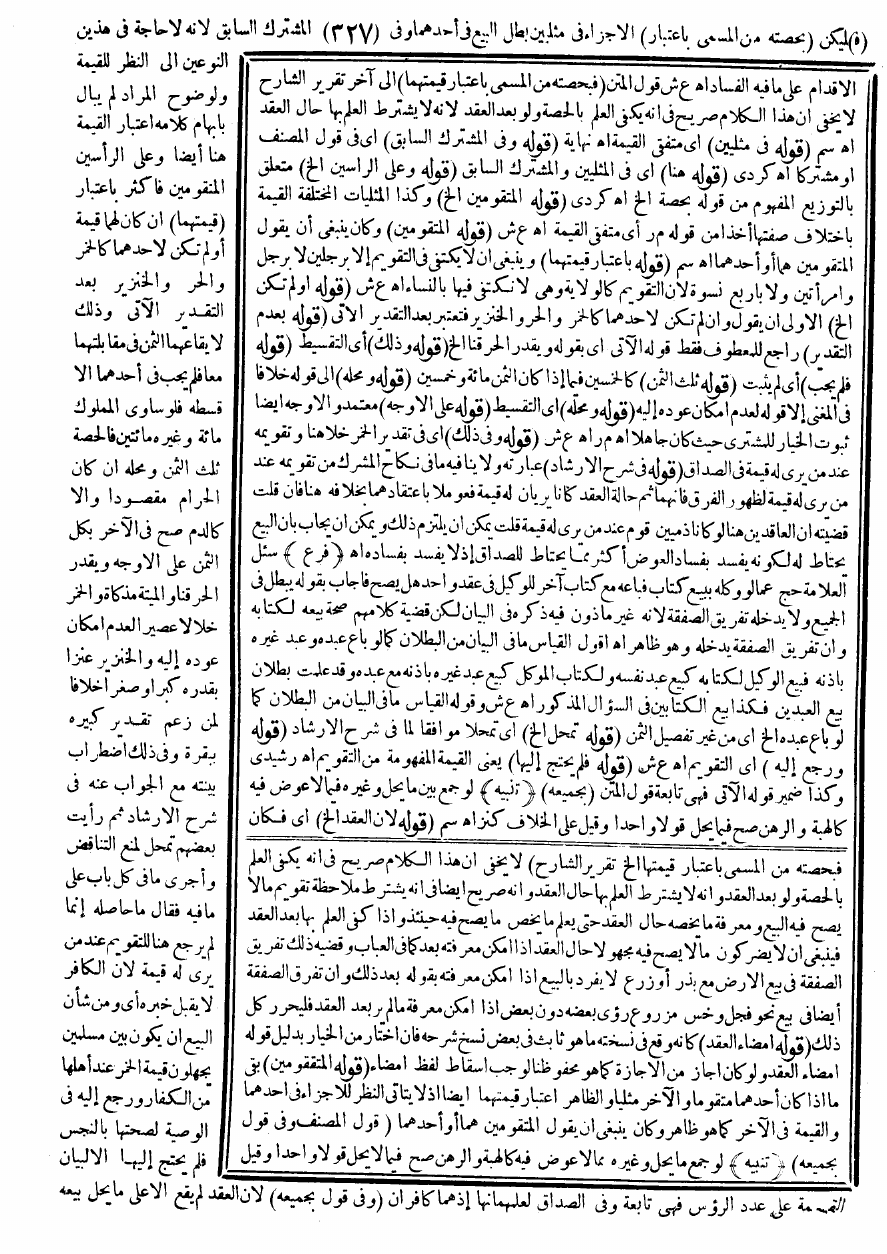 (ة) ليكن (بحصته من المسمى باعتبار) الاجزاء فى مثليين بطل البيع فى أحدهما وفى (٣٢٧) المشترك السابق لانه لا حاجة فى هذين
النوعين الى النظر للقيمة
ولوضوح المراد لم يبال
بابهام كلامه اعتبار القيمة
هنا أيضا وعلى الرأسين
المتقومين فاكثر باعتبار
(قيمتهما) ان كان لهما قيمة
أولم تكن لاحدهما كالخمر
والحر والخنزير بعد
التقدير الآتى وذلك
لايقاعهما الثمن فى مقابلتهما
معا فلم يجب فى أحدهما الا
قسطه فلو ساوى المملوك
مائة وغيره مائتين فالحصة
ثلث الثمن ومحله ان كان
الحرام مقصودا والا
كالدم صح فى الآخر بكل
الثمن على الاوجه ويقدر
الحر قنا والميتة مذكاة والخمر
خلا لا عصير العدم امكان
عوده إليه والخنزير عنزا
بقدره كبرا وصغرا خلافا
لمن زعم تقدير كبيره
ببقرة وفى ذلك اضطراب
بينته مع الجواب عنه فى
شرح الارشاد ثم رأيت
بعضهم تمحل لمنع التناقض
وأجرى ما فى كل باب على
ما فيه فقال ما حاصله إنما
لم يرجع هنا للتقويم عند من
يرى له قيمة لان الكافر
لا يقبل خبره أى ومن شأن
البيع ان يكون بين مسلمين
يجهلون قيمة الخمر عند أهلها
من الكفار ورجع إليه فى
الوصية لصحتها بالنجس
فلم يحتج إليها الالبيان
القسمة على عدد الرؤس فهى تابعة وفى الصداق لعلمهما بها إذ هما كافران (وفى قول بجميعه) لان العقد لم يقع الا على ما يحل بيعه
الاقدام على ما فيه الفساد اه ع ش قول المتن (فبحصته من المسمى باعتبار قيمتهما) الى آخر تقرير الشارح
لا يخفى ان هذا الكلام صريح فى انه يكفى العلم بالحصة ولو بعد العقد لانه لا يشترط العلم بها حال العقد
اه سم (قوله فى مثليين) اى متفقى القيمة اه نهاية (قوله وفى المشترك السابق) اى فى قول المصنف
او مشتركا اه كردى (قوله هنا) اى فى المثليين والمشترك السابق (قوله وعلى الراسين الخ) متعلق
بالتوزيع المفهوم من قوله بحصة الخ اه كردى (قوله المتقومين الخ) وكذا المثليات المختلفة القيمة
باختلاف صفتها أخذا من قوله م ر أى متفقى القيمة اه ع ش (قوله المتقومين) وكان ينبغى أن يقول
المتقومين هما أو أحدهما اه سم (قوله باعتبار قيمتهما) وينبغى ان لا يكتفى فى التقويم إلا برجلين لا برجل
وامرأتين ولا باربع نسوة لان التقويم كالولاية وهى لا نكتفى فيها بالنساء اه ع ش (قوله او لم تكن
الخ) الاولى ان يقول وان لم تكن لاحدهما كالخمر والحر والخنزير فتعتبر بعد التقدير الآتى (قوله بعدم
التقدير) راجع للمعطوف فقط قوله الآتى اى بقوله ويقدر الحر قنا الخ (قوله وذلك) أى التقسيط (قوله
فلم يجب) أى لم يثبت (قوله ثلث الثمن) كالخمسين فيما إذا كان الثمن مائة وخمسين (قوله ومحله) الى قوله خلافا
فى المغنى إلا قوله لعدم امكان عوده إليه (قوله ومحله) اى التقسيط (قوله على الاوجه) معتمد والاوجه ايضا
ثبوت الخيار للمشترى حيث كان جاهلا اه م ر اه ع ش (قوله وفى ذلك) اى فى تقدير الخمر خلا هنا وتقويمه
عند من يرى له قيمة فى الصداق (قوله فى شرح الارشاد) عبارته ولا ينافيه ما فى نكاح المشرك من تقويمه عند
من يرى له قيمة لظهور الفرق فانهما ثم حالة العقد كانا يريان له قيمة فعوملا باعتقادهما بخلافه هنا فان قلت
قضيته ان العاقدين هنا لو كانا ذميين قوم عند من يرى له قيمة قلت يمكن ان يلتزم ذلك ويمكن ان يجاب بان البيع
يحتاط له لكونه يفسد بفساد العوض أكثر مما يحتاط للصداق إذ لا يفسد بفساده اه ﴿فرع﴾ سئل
العلامة حج عما لو وكله ببيع كتاب فباعه مع كتاب آخر للوكيل فى عقد واحد هل يصح فاجاب بقوله يبطل فى
الجميع ولا يدخله تفريق الصفقة لانه غير ماذون فيه ذكره فى البيان لكن قضية كلامهم صحة بيعه لكتابه
وان تفريق الصفقة يدخله وهو ظاهر اه اقول القياس ما فى البيان من البطلان كما لو باع عبده وعبد غيره
باذنه فبيع الوكيل لكتابه كبيع عبد نفسه ولكتاب الموكل كبيع عبد غيره باذنه مع عبده وقد علمت بطلان
بيع العبدين فكذا بيع الكتابين فى السؤال المذكور اه ع ش وقوله القياس ما فى البيان من البطلان كما
لو باع عبده الخ اى من غير تفصيل الثمن (قوله تمحل الخ) اى تمحلا موافقا لما فى شرح الارشاد (قوله
ورجع إليه) اى التقويم اه ع ش (قوله فلم يحتج إليها) يعنى القيمة المفهومة من التقويم اه رشيدى
وكذا ضمير قوله الآتى فهى تابعة قول المتن (بجميعه) ﴿تنبيه﴾ لو جمع بين ما يحل وغيره فيما لا عوض فيه
كالهبة والرهن صح فيما يحل قولا واحدا وقيل على الخلاف كنز اه سم (قوله لان العقد الخ) اى فكان
فبحصته من المسمى باعتبار قيمتها الخ تقرير الشارح) لا يخفى ان هذا الكلام صريح فى انه يكفى العلم
بالحصة ولو بعد العقد وانه لا يشترط العلم بها حال العقد وانه صريح ايضا فى انه يشترط ملاحظة تقويم ما لا
يصح فيه البيع ومعرفة ما يخصه حال العقد حتى يعلم ما يخص ما يصح فيه حينئذ واذا كفى العلم بها بعد العقد
فينبغى ان لا يضر كون ما لا يصح فيه مجهولا حال العقد اذا امكن معرفته بعد كما فى العباب وقضيه ذلك تفريق
الصفقة فى بيع الارض مع بذر أو زرع لا يفرد بالبيع اذا امكن معرفته بقوله بعد ذلك وان تفرق الصفقة
أيضا فى بيع نحو فجل وخس مزروع رؤى بعضه دون بعض اذا امكن معرفة ما لم ير بعد العقد فليحرر كل
ذلك (قوله امضاء العقد) كانه وقع فى نسخته ما هو ثابت فى بعض نسخ شرحه فان اختار من الخيار بدليل قوله
امضاء العقد ولو كان اجاز من الاجازة كما هو محفوظنا لوجب اسقاط لفظ امضاء (قوله المتقومين) بقى
ما اذا كان أحدهما متقوما والآخر مثليا والظاهر اعتبار قيمتهما ايضا اذ لا يتاتى النظر للاجزاء فى احدهما
والقيمة فى الآخر كما هو ظاهر وكان ينبغى ان يقول المتقومين هما أو أحدهما (قول المصنف وفى قول
بجميعه) ﴿تنبيه﴾ لو جمع ما يحل وغيره مما لا عوض فيه كالهبة والرهن صح فيما لا يحل قولا واحدا وقيل